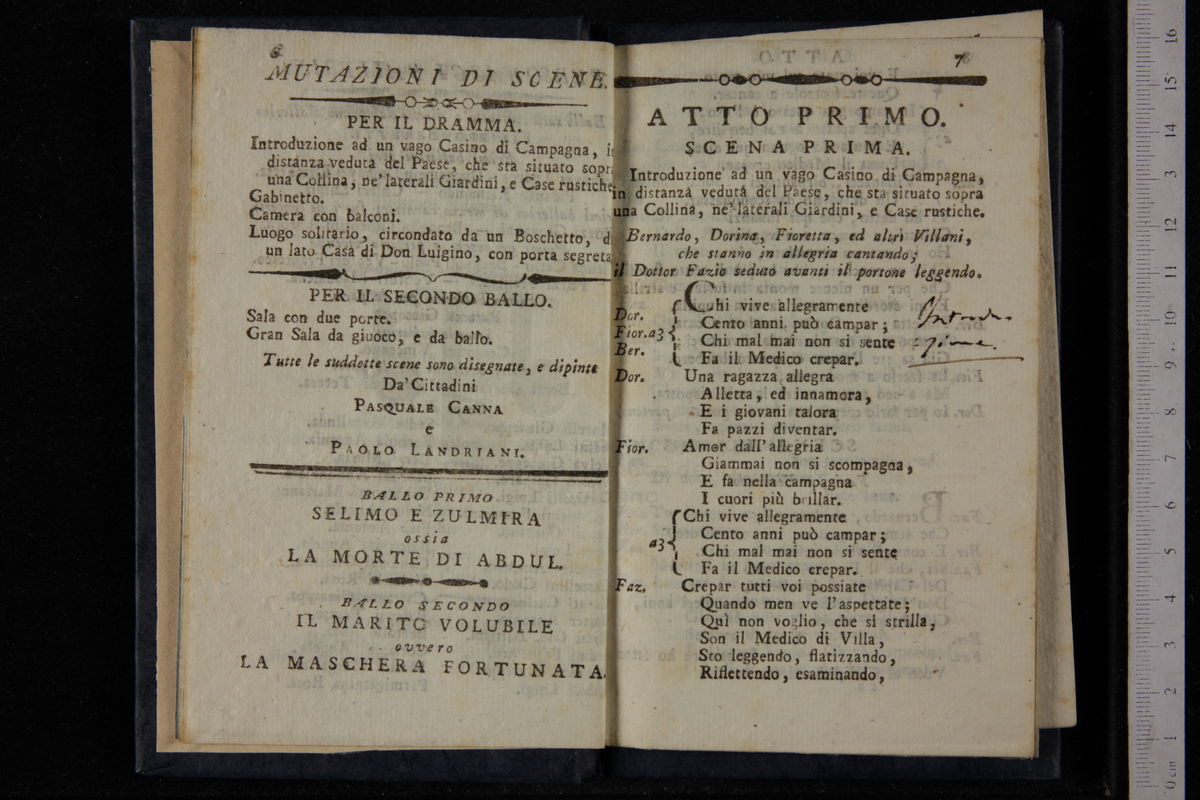 6
MUTAZIONI DI SCENE.
PER IL DRAMMA.
Introduzione ad un vago Casino di Campagna, in
distanza veduta del Paese, che sta situato sopra
una Collina, ne' laterali Giardini, e Case rustiche
Gabinetto.
Camera con balconi.
Luogo solitario, circondato da un Boschetto, d
un lato Casa di Don Luigino, con porta segreta
PER IL SECONDO BALLO.
Sala con due porte.
Gran Sala da giuoco, e da ballo.
Tutte le suddette scene sono disegnate, e dipinte
Da' Cittadini
PASQUALE CANNA
e
PAOLO LANDRIANI.
BALLO PRIMO
SELIMO E ZULMIRA
ossia
LA MORTE DI ABDUL.
BALLO SECONDO
IL MARITO VOLUBILE
ovvero
LA MASCHERA FORTUNATA.
7
ATTO PRIMO.
SCENA PRIMA.
Introduzione ad un vago Casino di Campagna,
in distanza veduta del Paese, che sta situato sopra
una Collina, ne' laterali Giardini, e Case rustiche.
Bernardo, Dorina, Fioretta, ed altri Villani,
che stanno in allegria cantando;
il Dottor Fazio seduto avanti il portone leggendo.
Chi vive allegramente
Dor. Cento anni può campar; Introdu-
Fior. a3 Chi mal mai non si sente zione.
Ber. Fa il Medico crepar.
Dor. Una ragazza allegra
Alletta, ed innamora,
E i giovani talora
Fa pazzi diventar.
Fior. Amor dall'allegria
Giammai non si scompagna,
E fa nella campagna
I cuori più brillar.
Chi vive allegramente
Cento anni può campar;
a3 Chi mal mai non si sente
Fa il Medico crepar.
Faz. Crepar tutti voi possiate
Quando men ve l'aspettate;
Quì non voglio, che si strilla,
Son il Medico di Villa,
Sto leggendo, flatizzando,
Riflettendo, esaminando,
16
15
14
13
12
11
10
9
8
7
6
5
4
3
2
1
0 cm